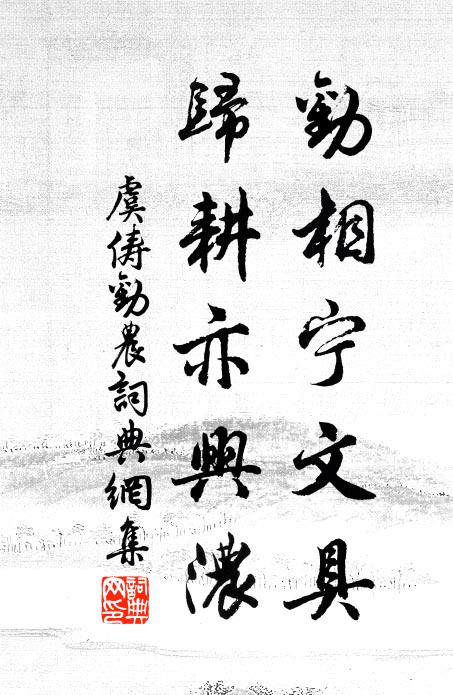 勸相宁文具
歸耕亦興濃
虞儔勸農詞典網集
詞典網印